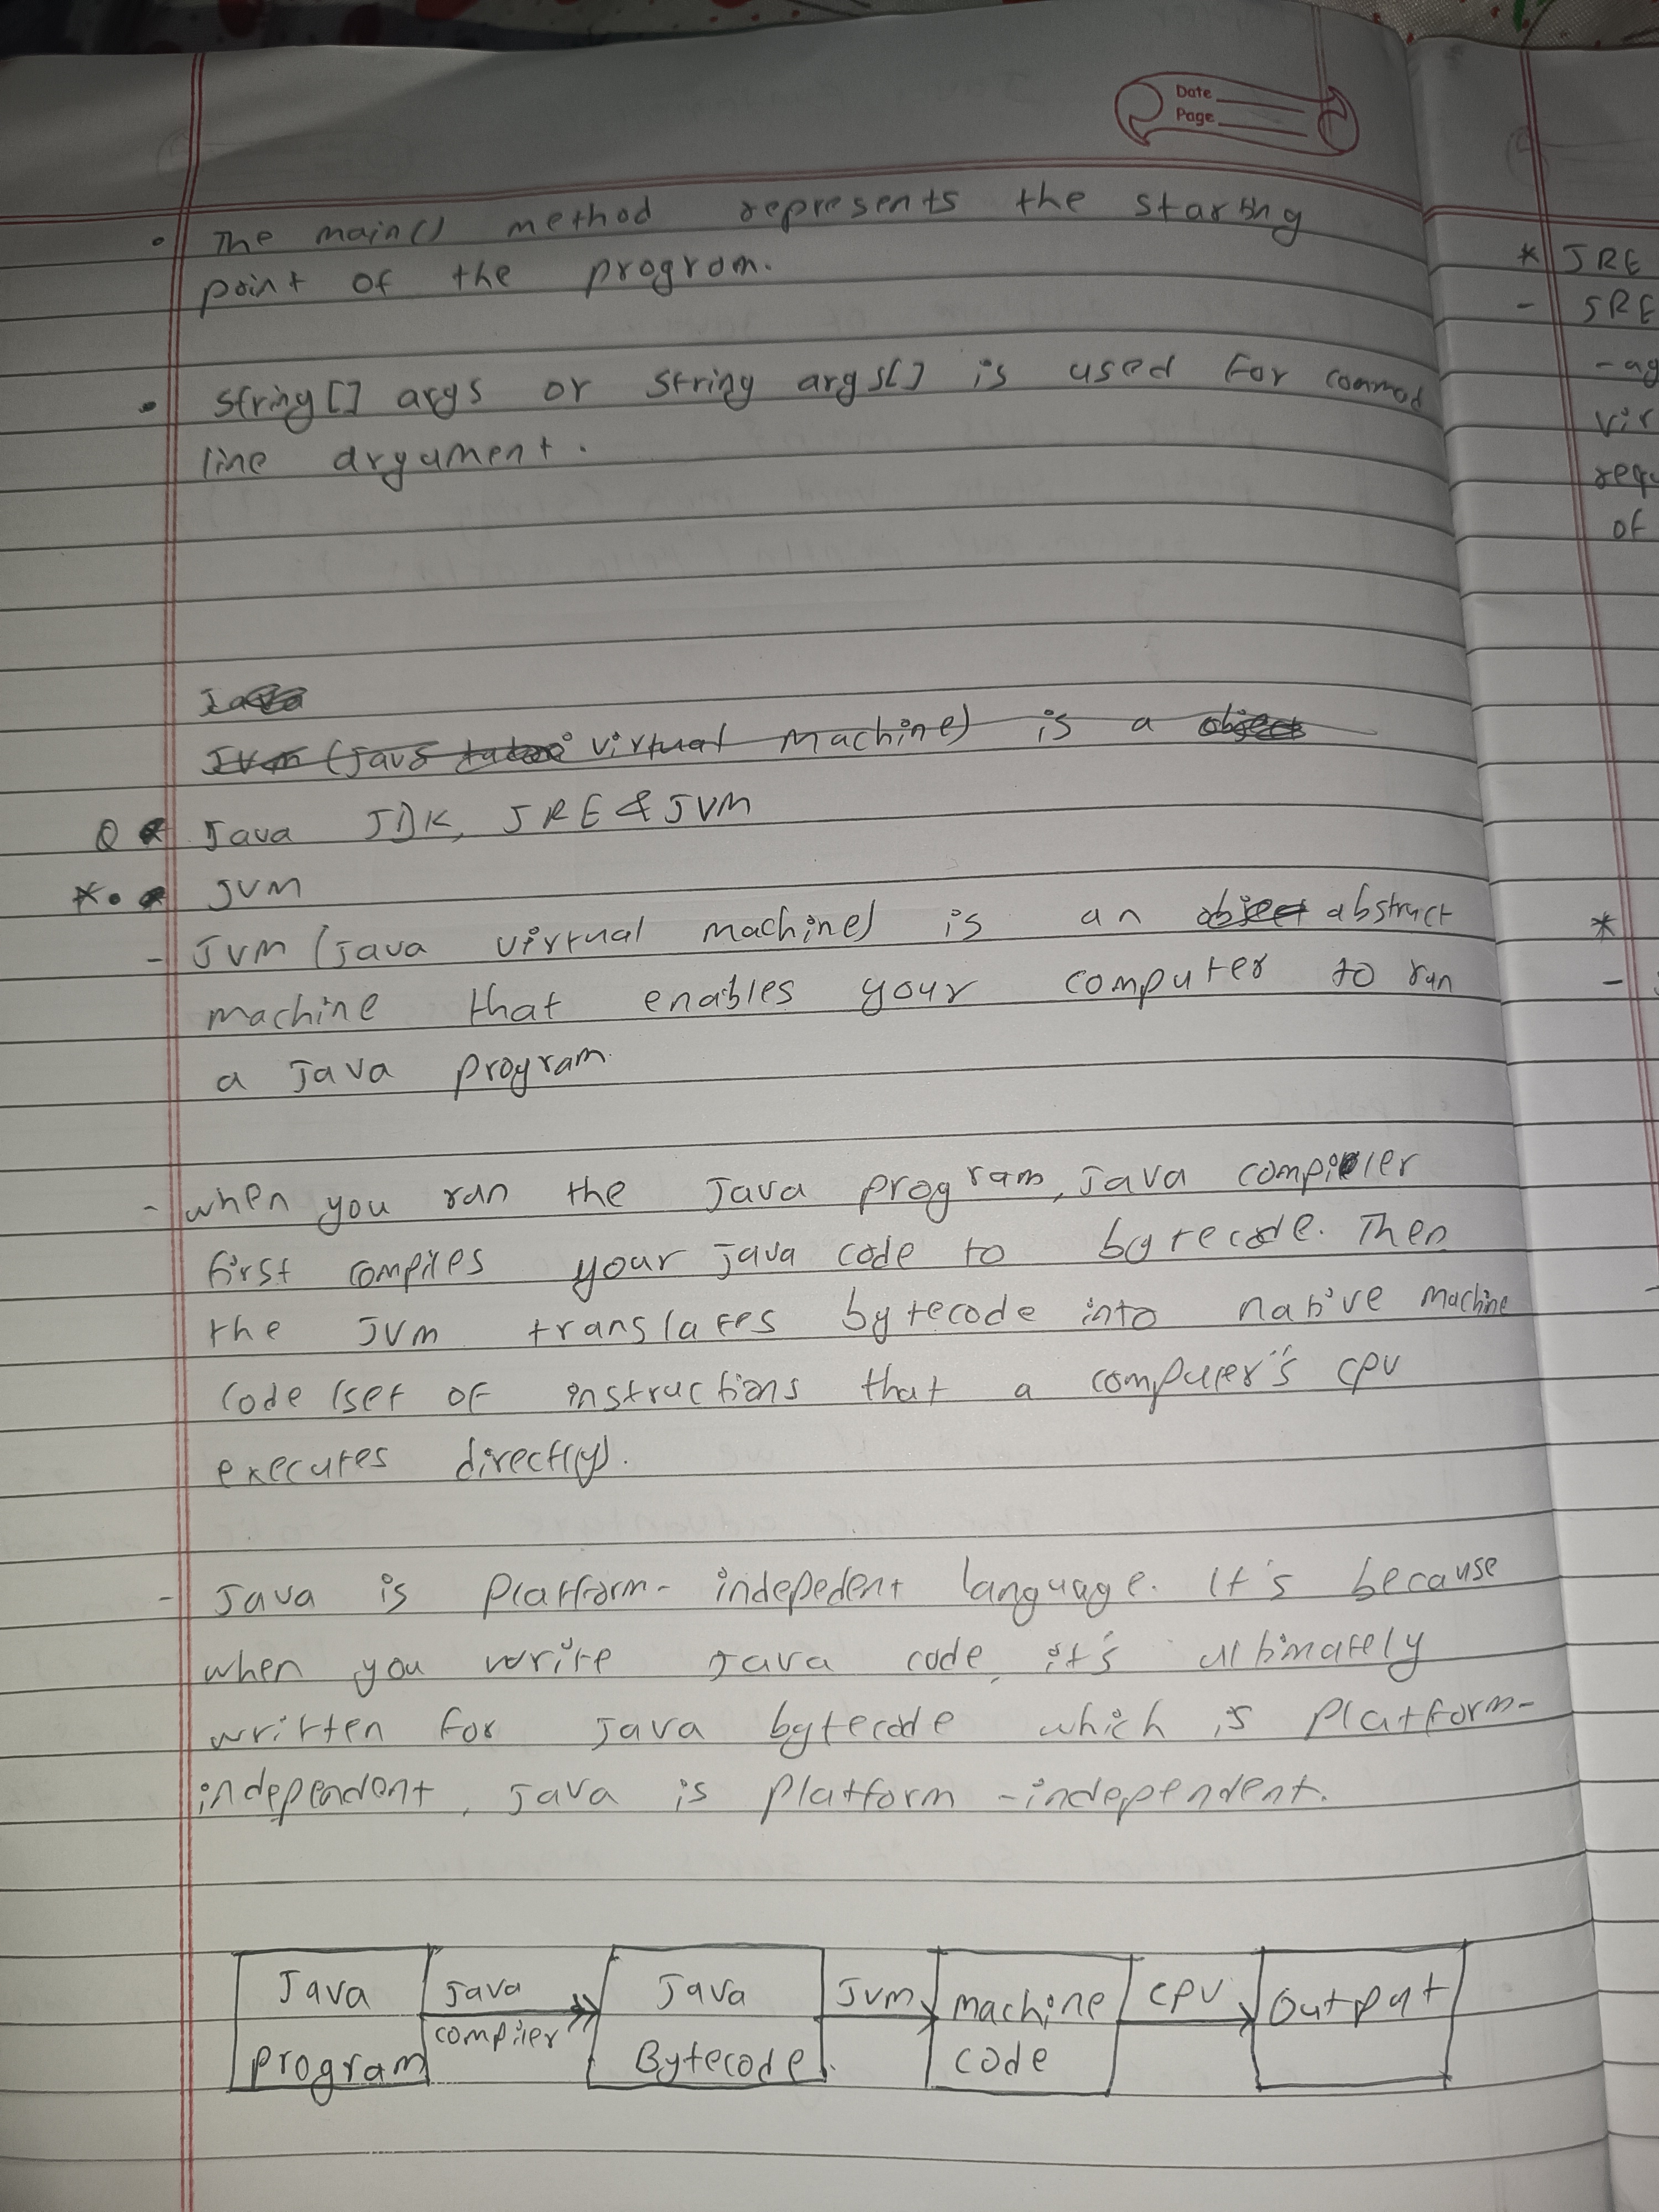 Date
Page
• The main() method represents the starting
point of the program.
• string[] args or string args[] is used for commad
line argument.
Java
JVM (java virtual machine) is a object
Q Java JDK, JRE & JVM
*• JVM
- JVM (java virtual machine) is an object abstruct
machine that enables your computer to run
a Java program.
- when you run the Java program, java compiler
first compiles your java code to bytecode. Then
the JVM translates bytecode into native machine
code (set of instructions that a computer's CPU
executes directly).
- Java is platform-indepedent language. It's because
when you write Java code, it's ultimately
written for Java bytecode which is platform-
independent, Java is platform-independent.
Java program
Java compiler
Java Bytecode
JVM
machine code
CPU
Output
* JRE
- JRE
- ag
vir
requ
of
*
-